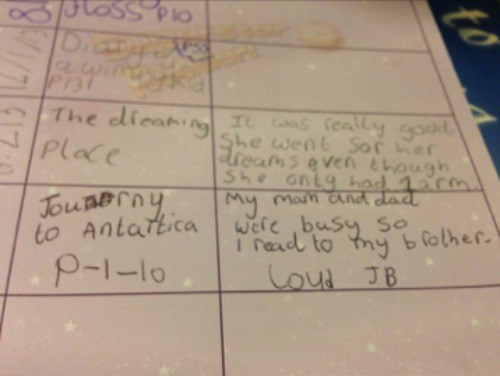 Floss P10
Diary of P35
a wimpy kid
P131
The dreaming
Place
It was really good.
She went for her
dreams even though
She only had 1 arm.
Journy
to Antartica
P-1-10
My mam and dad
were busy so
I read to my brother.
Loud JB
to